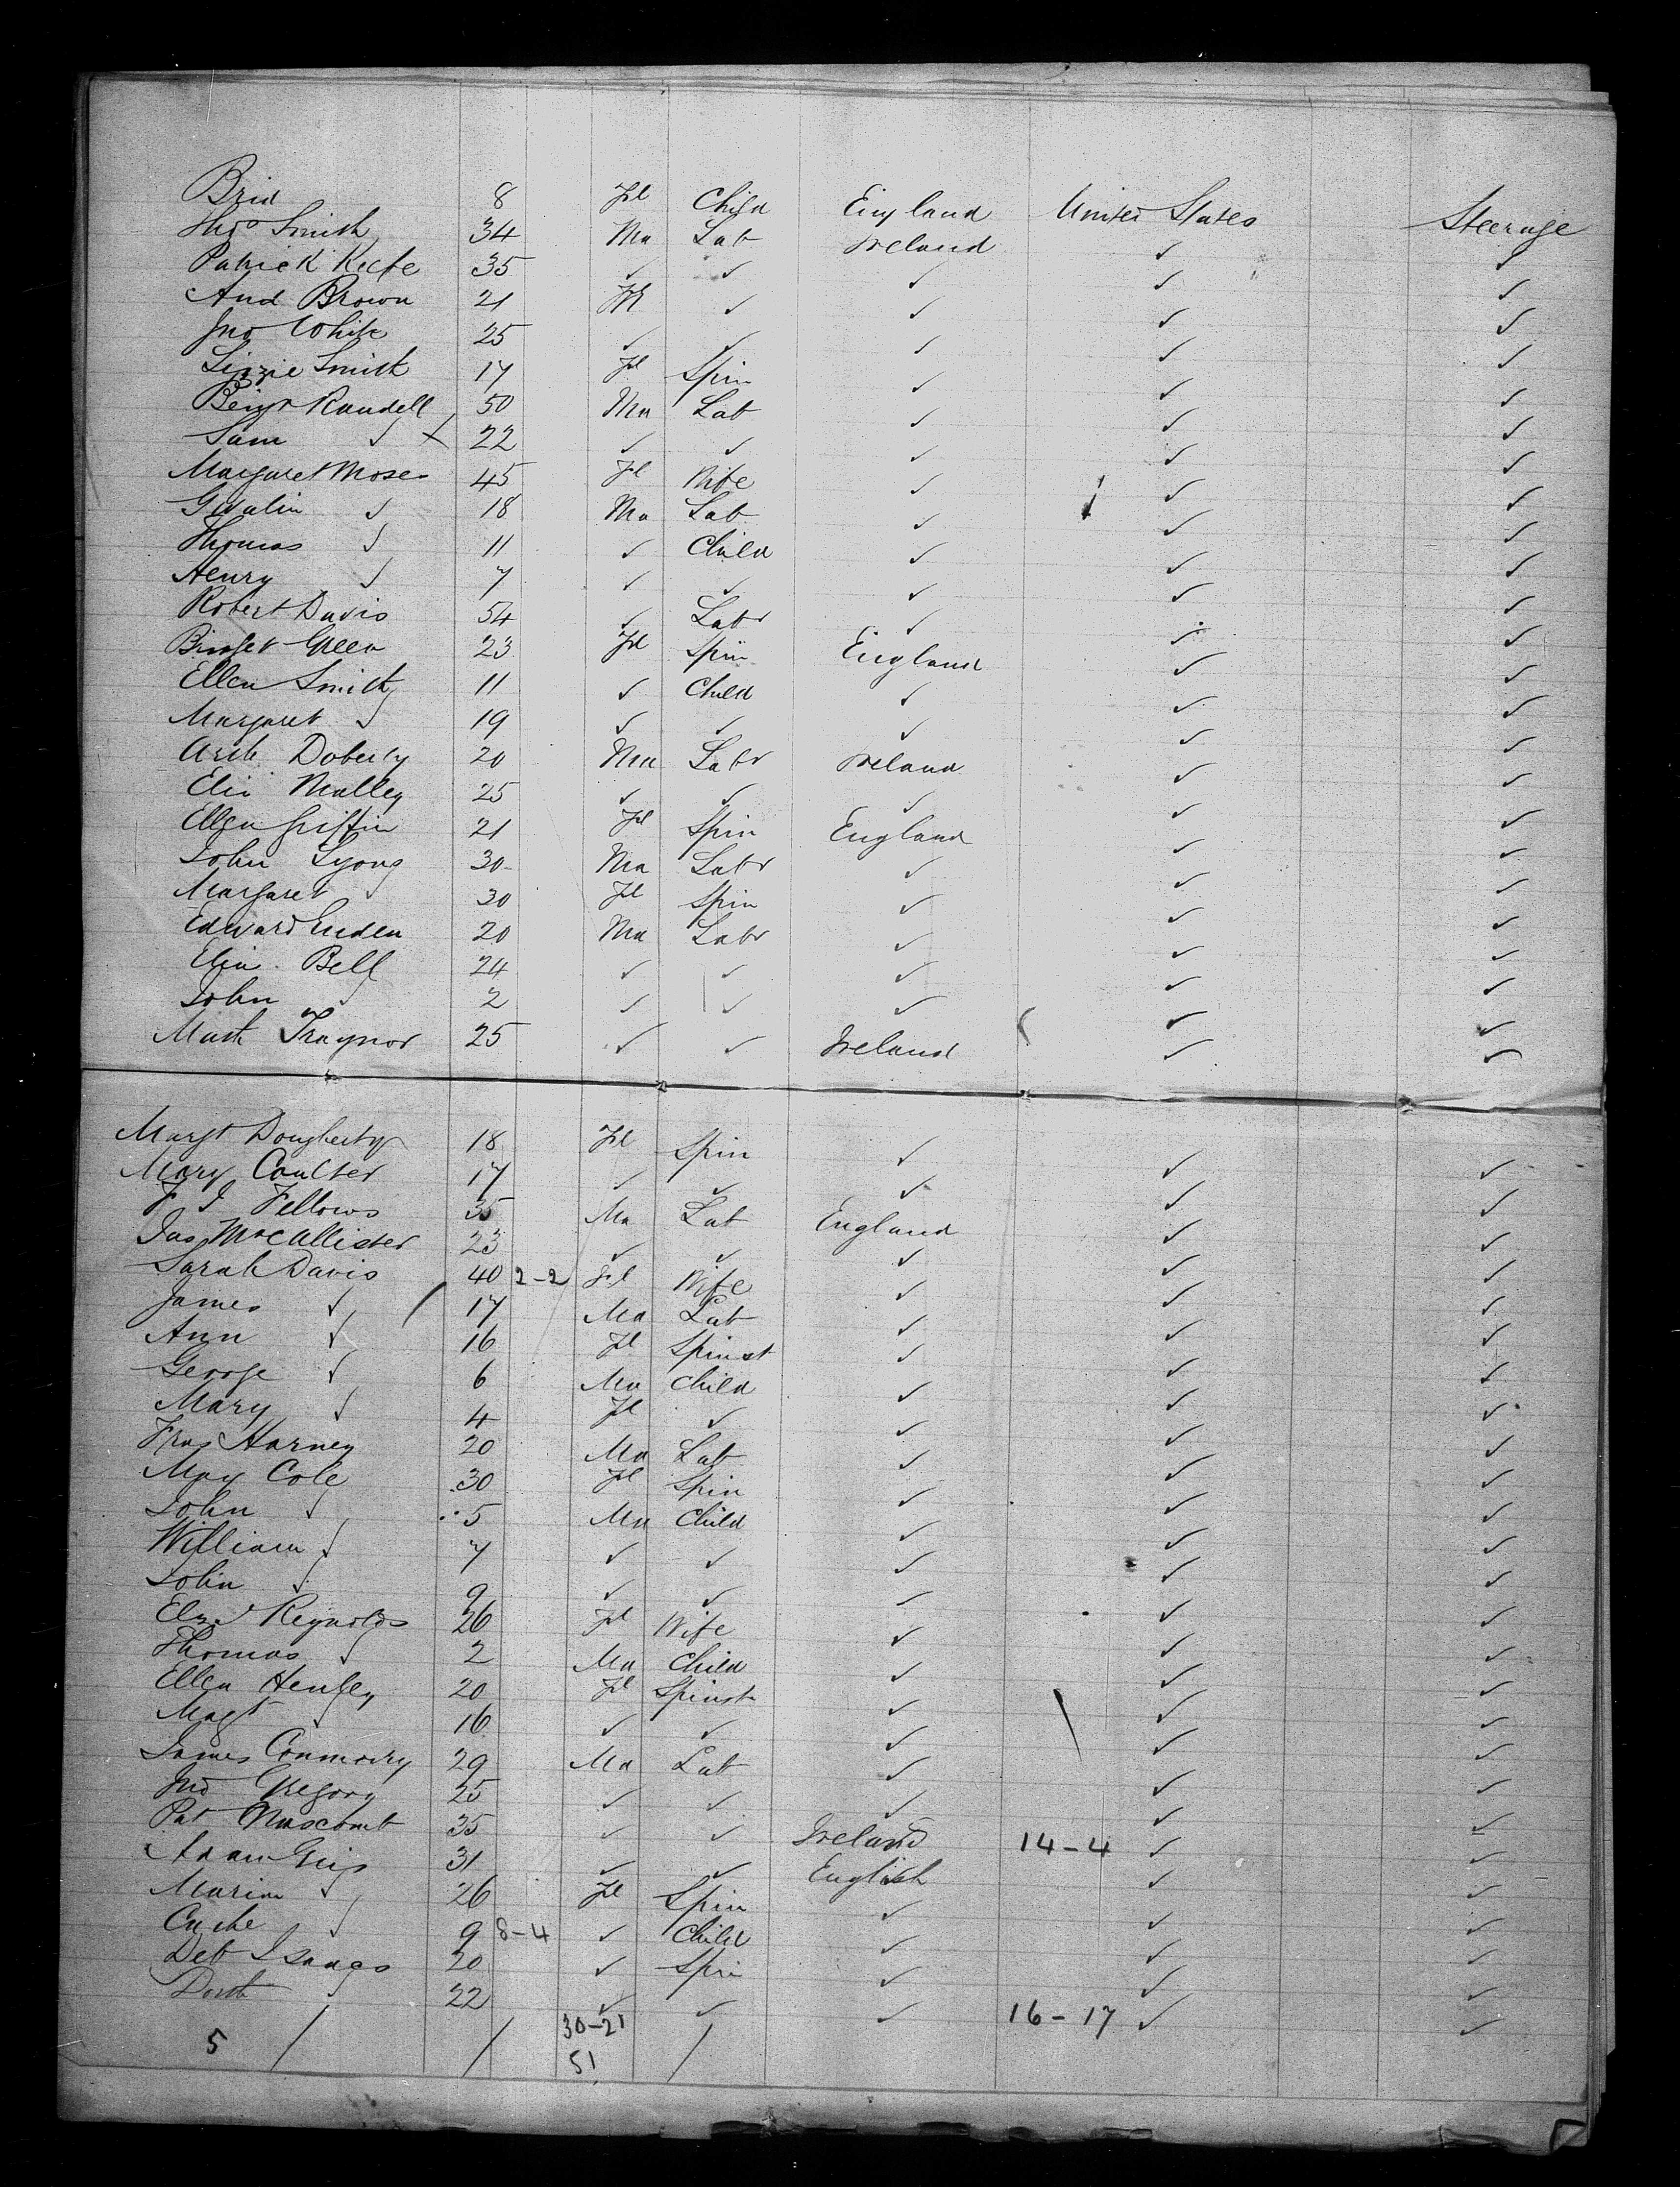 Brid 8 Fl Child England United States Steerage
Tho Smith 34 Ma Lab Ireland ✓ ✓
Patrick Keefe 35 ✓ ✓ ✓ ✓ ✓
And Brown 21 Fl ✓ ✓ ✓ ✓
Jno White 25 ✓ ✓ ✓ ✓ ✓
Lizzie Smith 17 Fl Spin ✓ ✓ ✓
Benj Randell 50 Ma Lab ✓ ✓ ✓
Sam ✓ 22 ✓ ✓ ✓ ✓ ✓
Margaret Moses 45 Fl Wife ✓ ✓ ✓
✓ 18 Ma Lab ✓ ✓ ✓
Thomas ✓ 11 ✓ Child ✓ ✓ ✓
Henry ✓ 7 ✓ ✓ ✓ ✓ ✓
Robert Davis 54 ✓ Labr ✓ ✓ ✓
Bridget Green 23 Fl Spin England ✓ ✓
Ellen Smith 11 ✓ Child ✓ ✓ ✓
Margaret ✓ 19 ✓ ✓ ✓ ✓ ✓
Arch Doherty 20 Ma Labr Ireland ✓ ✓
Malley 25 ✓ ✓ ✓ ✓ ✓
Ellen Griffin 21 Fl Spin England ✓ ✓
John Lyons 30 Ma Labr ✓ ✓ ✓
Margaret ✓ 30 Fl Spin ✓ ✓ ✓
Edward 20 Ma Labr ✓ ✓ ✓
Bell 24 ✓ ✓ ✓ ✓ ✓
John ✓ 2 ✓ ✓ ✓ ✓ ✓
Traynor 25 ✓ ✓ Ireland ✓ ✓
Margt Dougherty 18 Fl Spin ✓ ✓ ✓
Mary Coulter 17 ✓ ✓ ✓ ✓ ✓
F J Fellows 35 Ma Lab England ✓ ✓
Jas McCallister 23 ✓ ✓ ✓ ✓ ✓
Sarah Davis 40 2-2 Fl Wife ✓ ✓ ✓
James ✓ 17 Ma Lab ✓ ✓ ✓
Ann ✓ 16 Fl Spinst ✓ ✓ ✓
George ✓ 6 Ma Child ✓ ✓ ✓
Mary ✓ 4 Fl ✓ ✓ ✓ ✓
Fras Harney 20 Ma Lab ✓ ✓ ✓
May Cole 30 Fl Spin ✓ ✓ ✓
John ✓ 5 Ma Child ✓ ✓ ✓
William ✓ 7 ✓ ✓ ✓ ✓ ✓
John ✓ 9 ✓ ✓ ✓ ✓ ✓
Reynolds 26 Fl Wife ✓ ✓ ✓
Thomas ✓ 2 Ma Child ✓ ✓ ✓
Ellen Henley 20 Fl Spinstr ✓ ✓ ✓
Magt ✓ 16 ✓ ✓ ✓ ✓ ✓
James 29 Ma Lab ✓ ✓ ✓
Jno Gregory 25 ✓ ✓ ✓ ✓ ✓
Pat 35 ✓ ✓ Ireland 14-4 ✓ ✓
Adam 31 ✓ ✓ English ✓ ✓
Maria ✓ 26 Fl Spin ✓ ✓ ✓
✓ 9 8-4 ✓ Child ✓ ✓ ✓
Deb Isaacs 20 ✓ Spin ✓ ✓ ✓
✓ 22 ✓ ✓ ✓ 16-17 ✓ ✓
5 / / 30-21 /
51